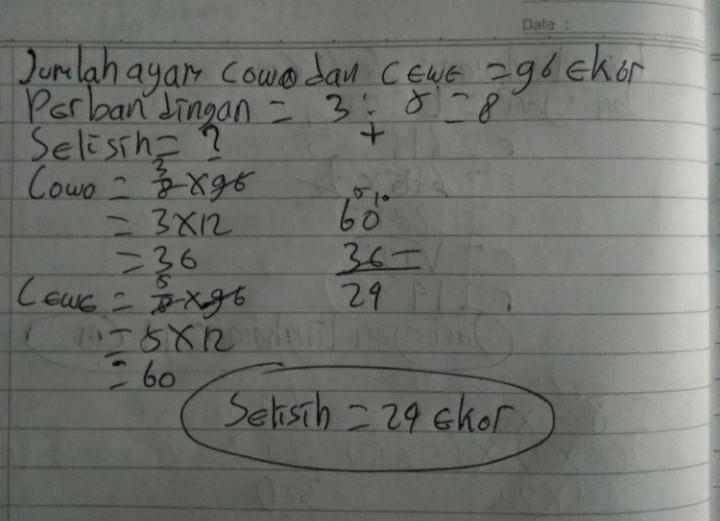 Date :
Jumlah ayam cowo dan cewe = 96 ekor
Perbandingan = 3 : 5 = 8
+
Selisih = ?
Cowo = 3/8 x 96
= 3 x 12
= 36
Cewe = 5/8 x 96
= 5 x 12
= 60
5 10
60
36 -
24
Selisih = 24 ekor